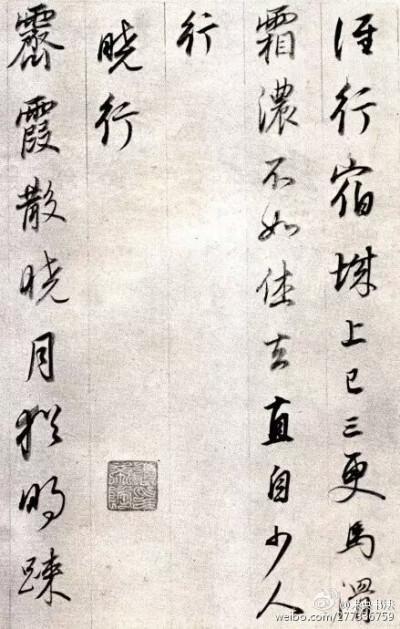 誰行宿城上已三更馬滑
霜濃不如休去直自少人
行
晓行
霽霞散晓月猶明疎